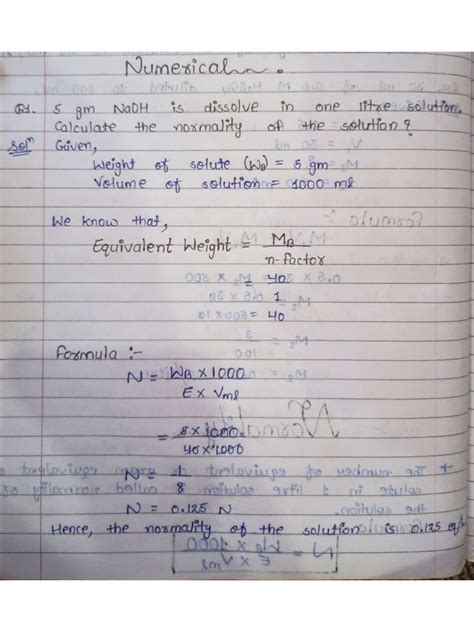 Numerical
Q1. 5 gm NaOH is dissolve in one litre solution.
Calculate the normality of the solution?
Solⁿ Given,
Weight of solute (W_B) = 5 gm
Volume of solution = 1000 ml
We know that,
Equivalent Weight = M_B
n-factor
= 40
1
= 40
Formula :-
N = W_B × 1000
E × V_ml
= 5 × 1000
40 × 1000
N =
N = 0.125 N
Hence, the normality of the solution is 0.125